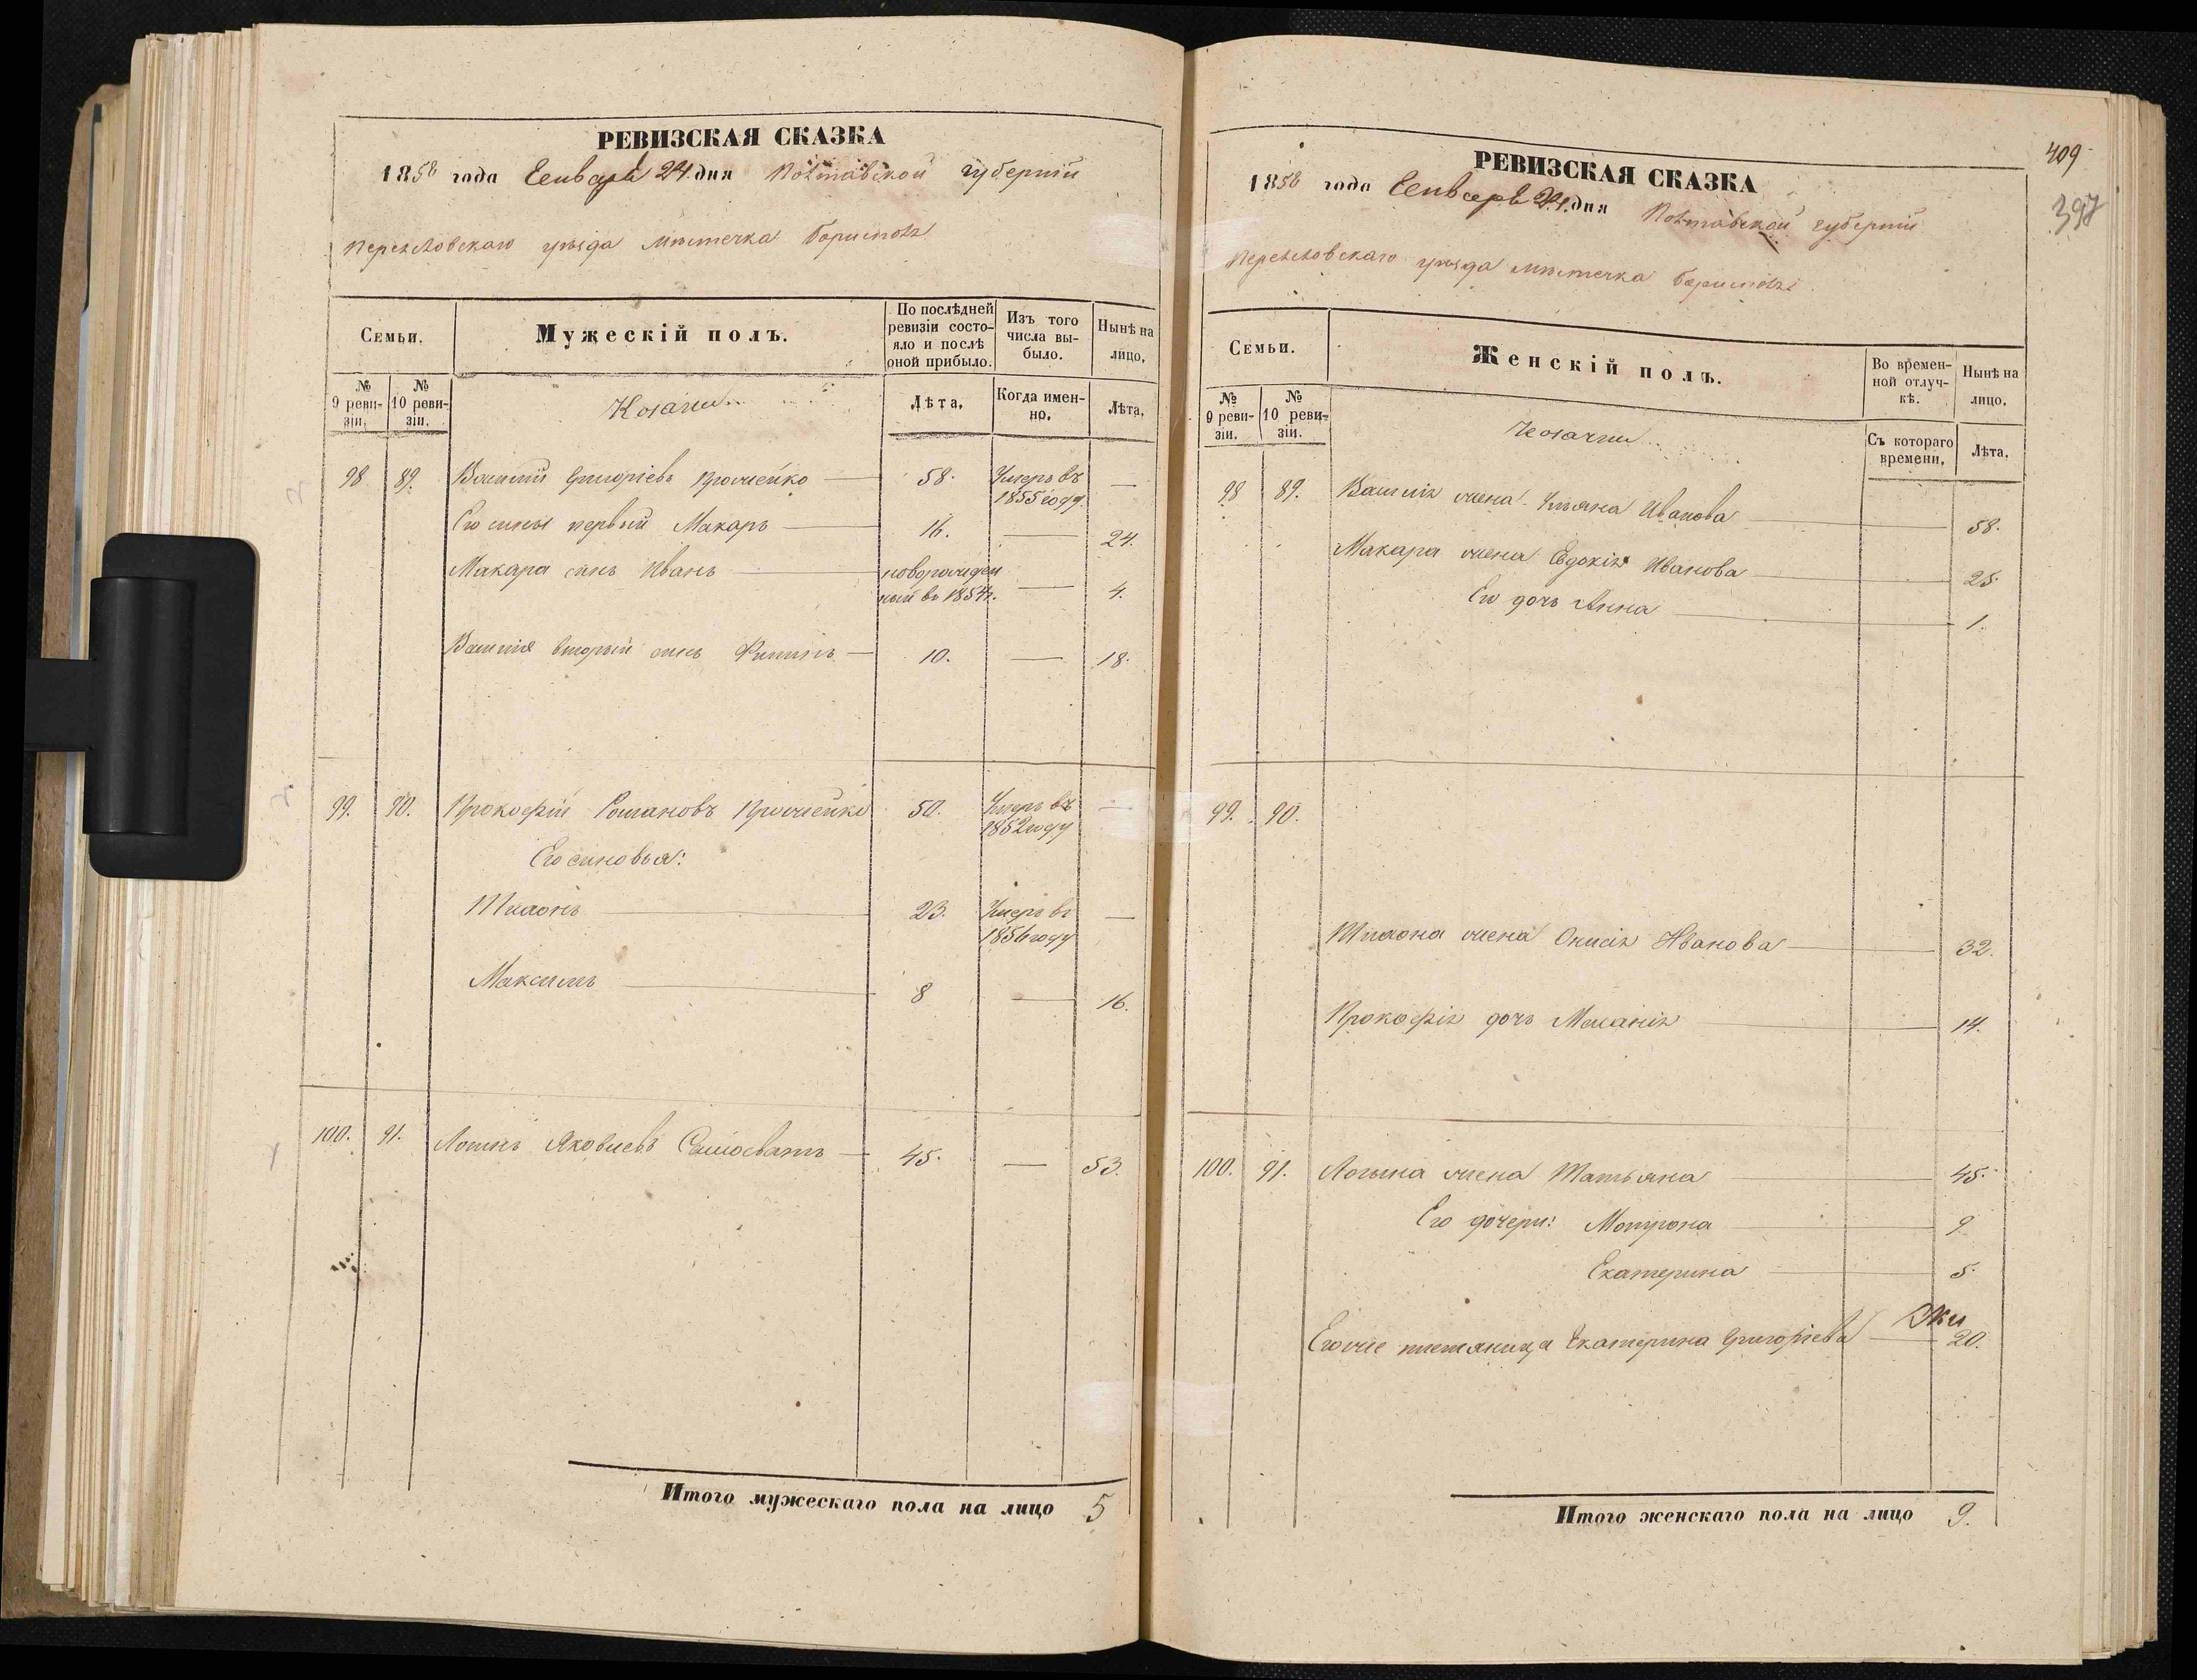 РЕВИЗСКАЯ СКАЗКА
1858 года Генваря 24 дня Полтавской губернии
Переяловскаго уѣзда мѣстечка Борисполя
Семьи.
Мужескій полъ.
По послѣдней ревизіи состояло и послѣ оной прибыло.
Изъ того числа выбыло.
Нынѣ на лицо.
№ 9 ревизіи.
№ 10 ревизіи.
Козаки
Лѣта.
Когда именно.
Лѣта.
98 89. Василій Григорьевъ 58. Умеръ въ 1855 году —
Его сыны первый Макаръ 16. — 24.
Макара сынъ Иванъ новорожденный въ 1854 г. — 4.
Василія вторый сынъ Филипъ 10. — 18.
99. 90. Прокофій Романовъ 50. Умеръ въ 1852 году —
Его сыновья:
23. Умеръ въ 1856 году —
Максимъ 8 — 16.
100. 91. Логинъ Яковлевъ Самосватъ 45. — 53.
Итого мужескаго пола на лицо 5
409
397
РЕВИЗСКАЯ СКАЗКА
1858 года Генваря 24 дня Полтавской губернии
Переяловскаго уѣзда мѣстечка Борисполя
Семьи.
Женскій полъ.
Во временной отлучкѣ.
Нынѣ на лицо.
№ 9 ревизіи.
№ 10 ревизіи.
Козачки
Съ котораго времени.
Лѣта.
98 89. Василія жена Ульяна Иванова 58.
Макара жена Евдокія Иванова 25.
Его дочь Анна 1.
99. 90.
жена Онисія Иванова 32.
Прокофія дочь Меланія 14.
100. 91. Логина жена Татьяна 45.
Его дочери: Мотрона 9
Екатерина 5
Его же племяница Екатерина Григорьева 20.
Итого женскаго пола на лицо 9.